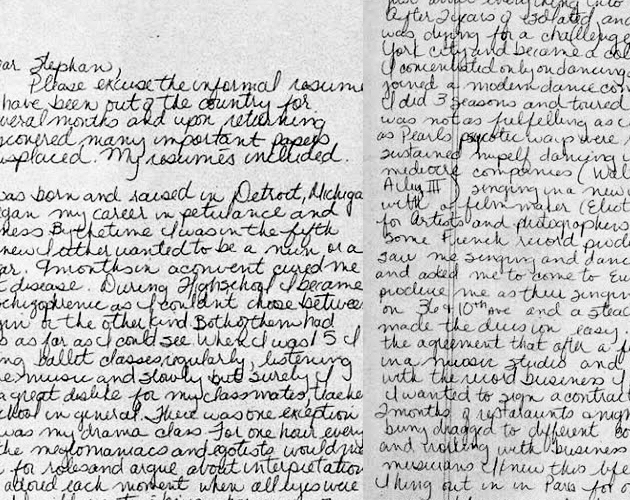 ear Stephan,
Please excuse the informal resume
have been out of the country for
veral months and upon returning
scovered many important papers
isplaced. My resumes included.
was born and raised in Detroit, Michiga
gan my career in petulance and
ness By the time I was in the fifth
new I either wanted to be a nun or a
ar. 9 months in a convent cured me
t disease. During High school I became
schizophrenic as I couldn't chose betwee
gin or the other kind Both of them had
s as far as I could see. When I was 15 I
ng ballet classes regularly, listening
e music and slowly but surely I
a great dislike for my classmates, teache
chool in general. There was one exeption
was my drama class. For one hour every
the meglomaniacs and egotists would
for roles and argue about interpretation
adored each moment when all eyes were
just everything into
After 2 years of isolated and
was dying for a challenge
York city and became a
I concentrated only on dancing
joined a modern dance com
I did 3 seasons and toured
was not as fulfilling as
as Pearls psycotic ways were
sustained myself dancing
mediocre companies (Wal
Ailey III) singing in a new
with a film maker (Eliot
for Artists and photographers
Some French record produ
saw me singing and danc
and asked me to come to Eu
produce me as their singin
on 36 & 10th ave and a stea
made the decision easy.
the agreement that after a f
in a music studio and
with the record business
I wanted to sign a contract
2 months of restaraunts a nigh
bung dragged to different
and working with business
musicians I knew this life
I hung out in Paris for